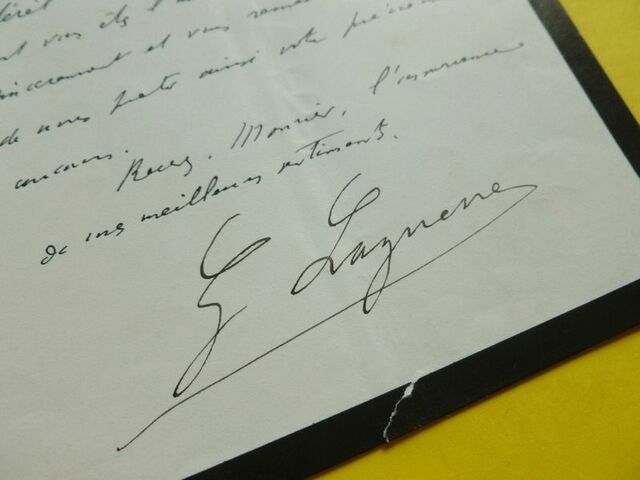 ont vus ils l'
sincèrement et vous remer
de nous prêter ainsi votre précieux
concours.
Recevez, Monsieur, l'assurance
de mes meilleurs sentiments.
G Laguerre